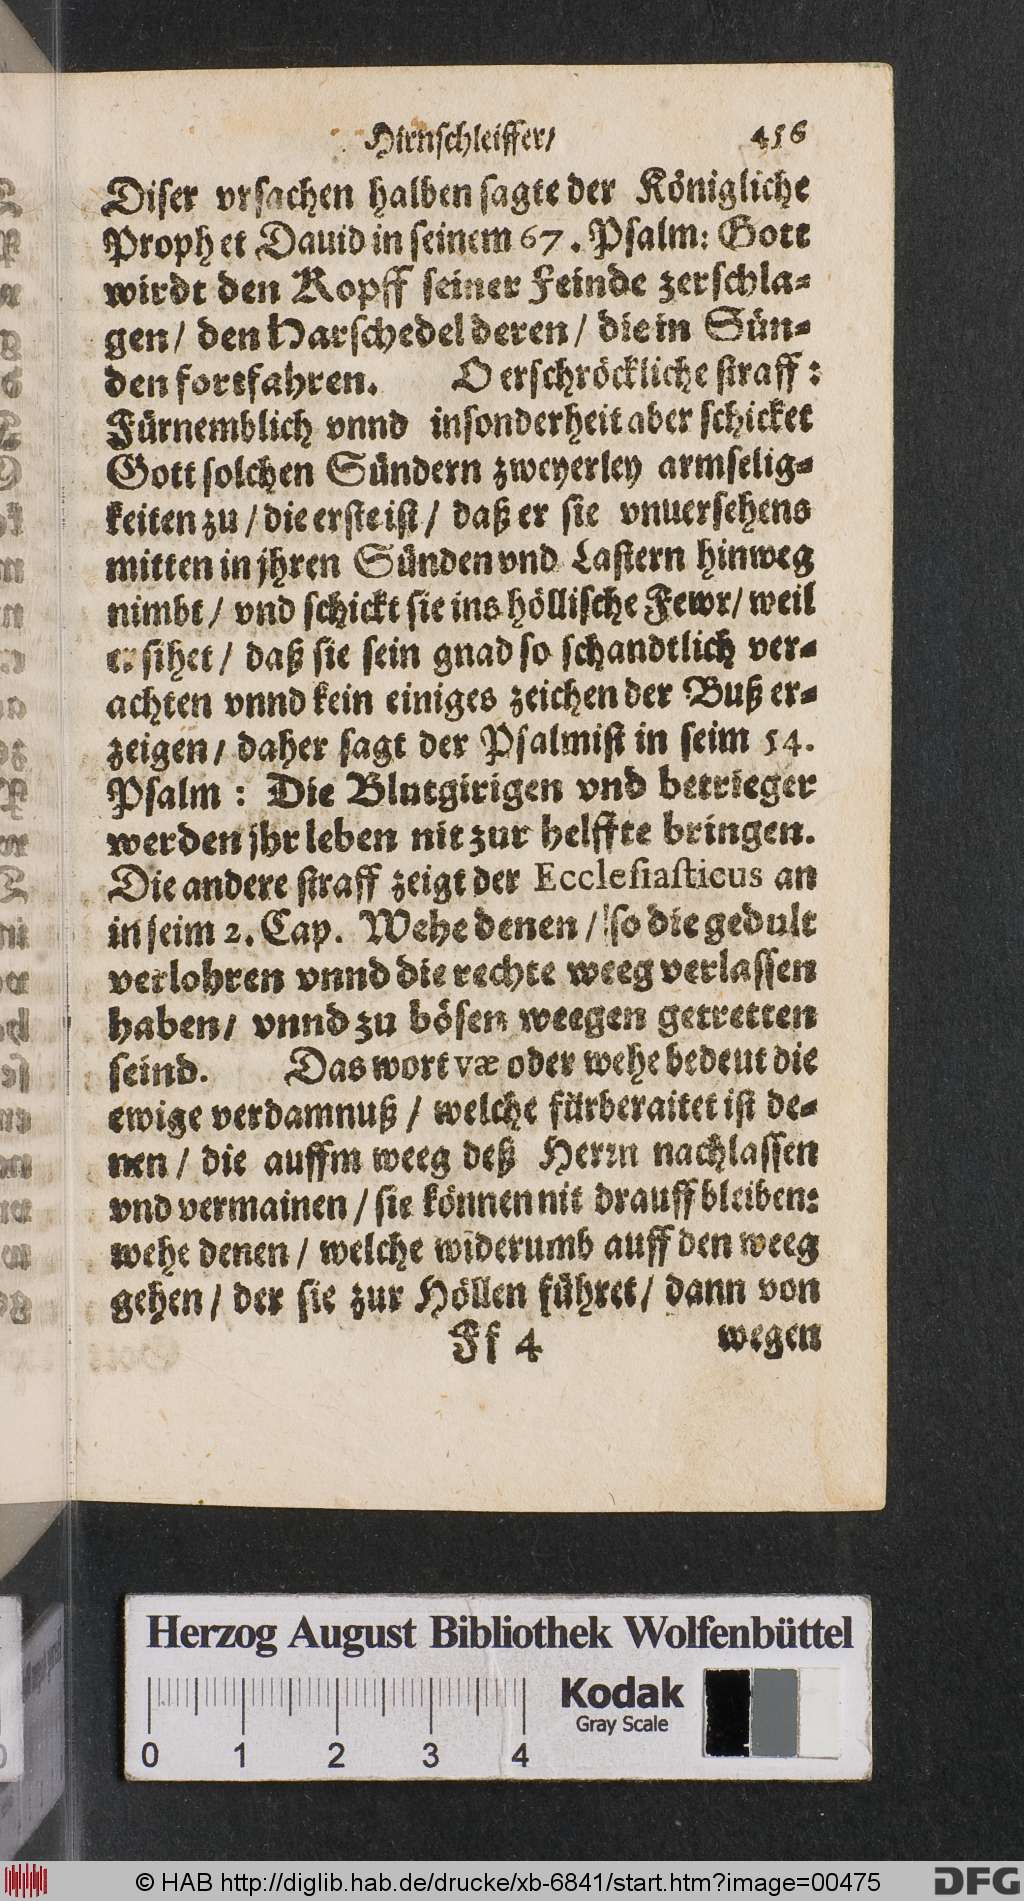 Hirnschleiffer/ 456
Diser vrsachen halben sagte der Königliche
Prophet Dauid in seinem 67. Psalm: Gott
wirdt den Kopff seiner Feinde zerschla-
gen/ den Harschedel deren/ die in Sün-
den fortfahren. O erschröckliche straff:
Fürnemblich vnnd insonderheit aber schicket
Gott solchen Sündern zweyerley armselig-
keiten zu/ die erste ist/ daß er sie vnuersehens
mitten in jhren Sünden vnd Lastern hinweg
nimbt/ vnd schickt sie ins höllische Fewr/ weil
er sihet/ daß sie sein gnad so schandtlich ver-
achten vnnd kein einiges zeichen der Buß er-
zeigen/ daher sagt der Psalmist in seim 54.
Psalm: Die Blutgirigen vnd betrieger
werden jhr leben nit zur helffte bringen.
Die andere straff zeigt der Ecclesiasticus an
in seim 2. Cap. Wehe denen/ so die gedult
verlohren vnnd die rechte weeg verlassen
haben/ vnnd zu bösen weegen getretten
seind. Das wort væ oder wehe bedeut die
ewige verdamnuß/ welche fürberaitet ist de-
nen/ die auffm weeg deß Herrn nachlassen
vnd vermainen/ sie können nit drauff bleiben:
wehe denen/ welche widerumb auff den weeg
gehen/ der sie zur Höllen führet/ dann von
Ff 4 wegen
Herzog August Bibliothek Wolfenbüttel
Kodak
Gray Scale
0 1 2 3 4
© HAB http://diglib.hab.de/drucke/xb-6841/start.htm?image=00475
DFG